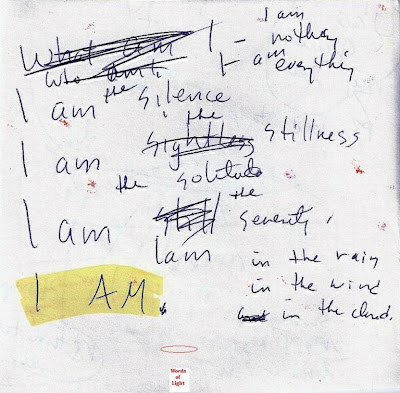 What am I – I am
nothing
Who am I. I am everything
I am the silence
I am the sightless stillness
the solitude
I am still the serenity,
I am in the rain
in the wind
in the cloud.
I AM.
Words
of
Light